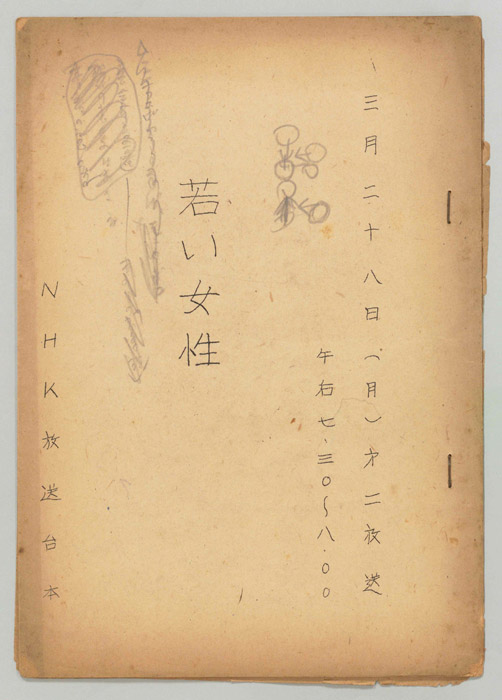 三月二十八日(月)才二放送
午右七、三〇~八.〇〇
若い女性
NHK放送台本